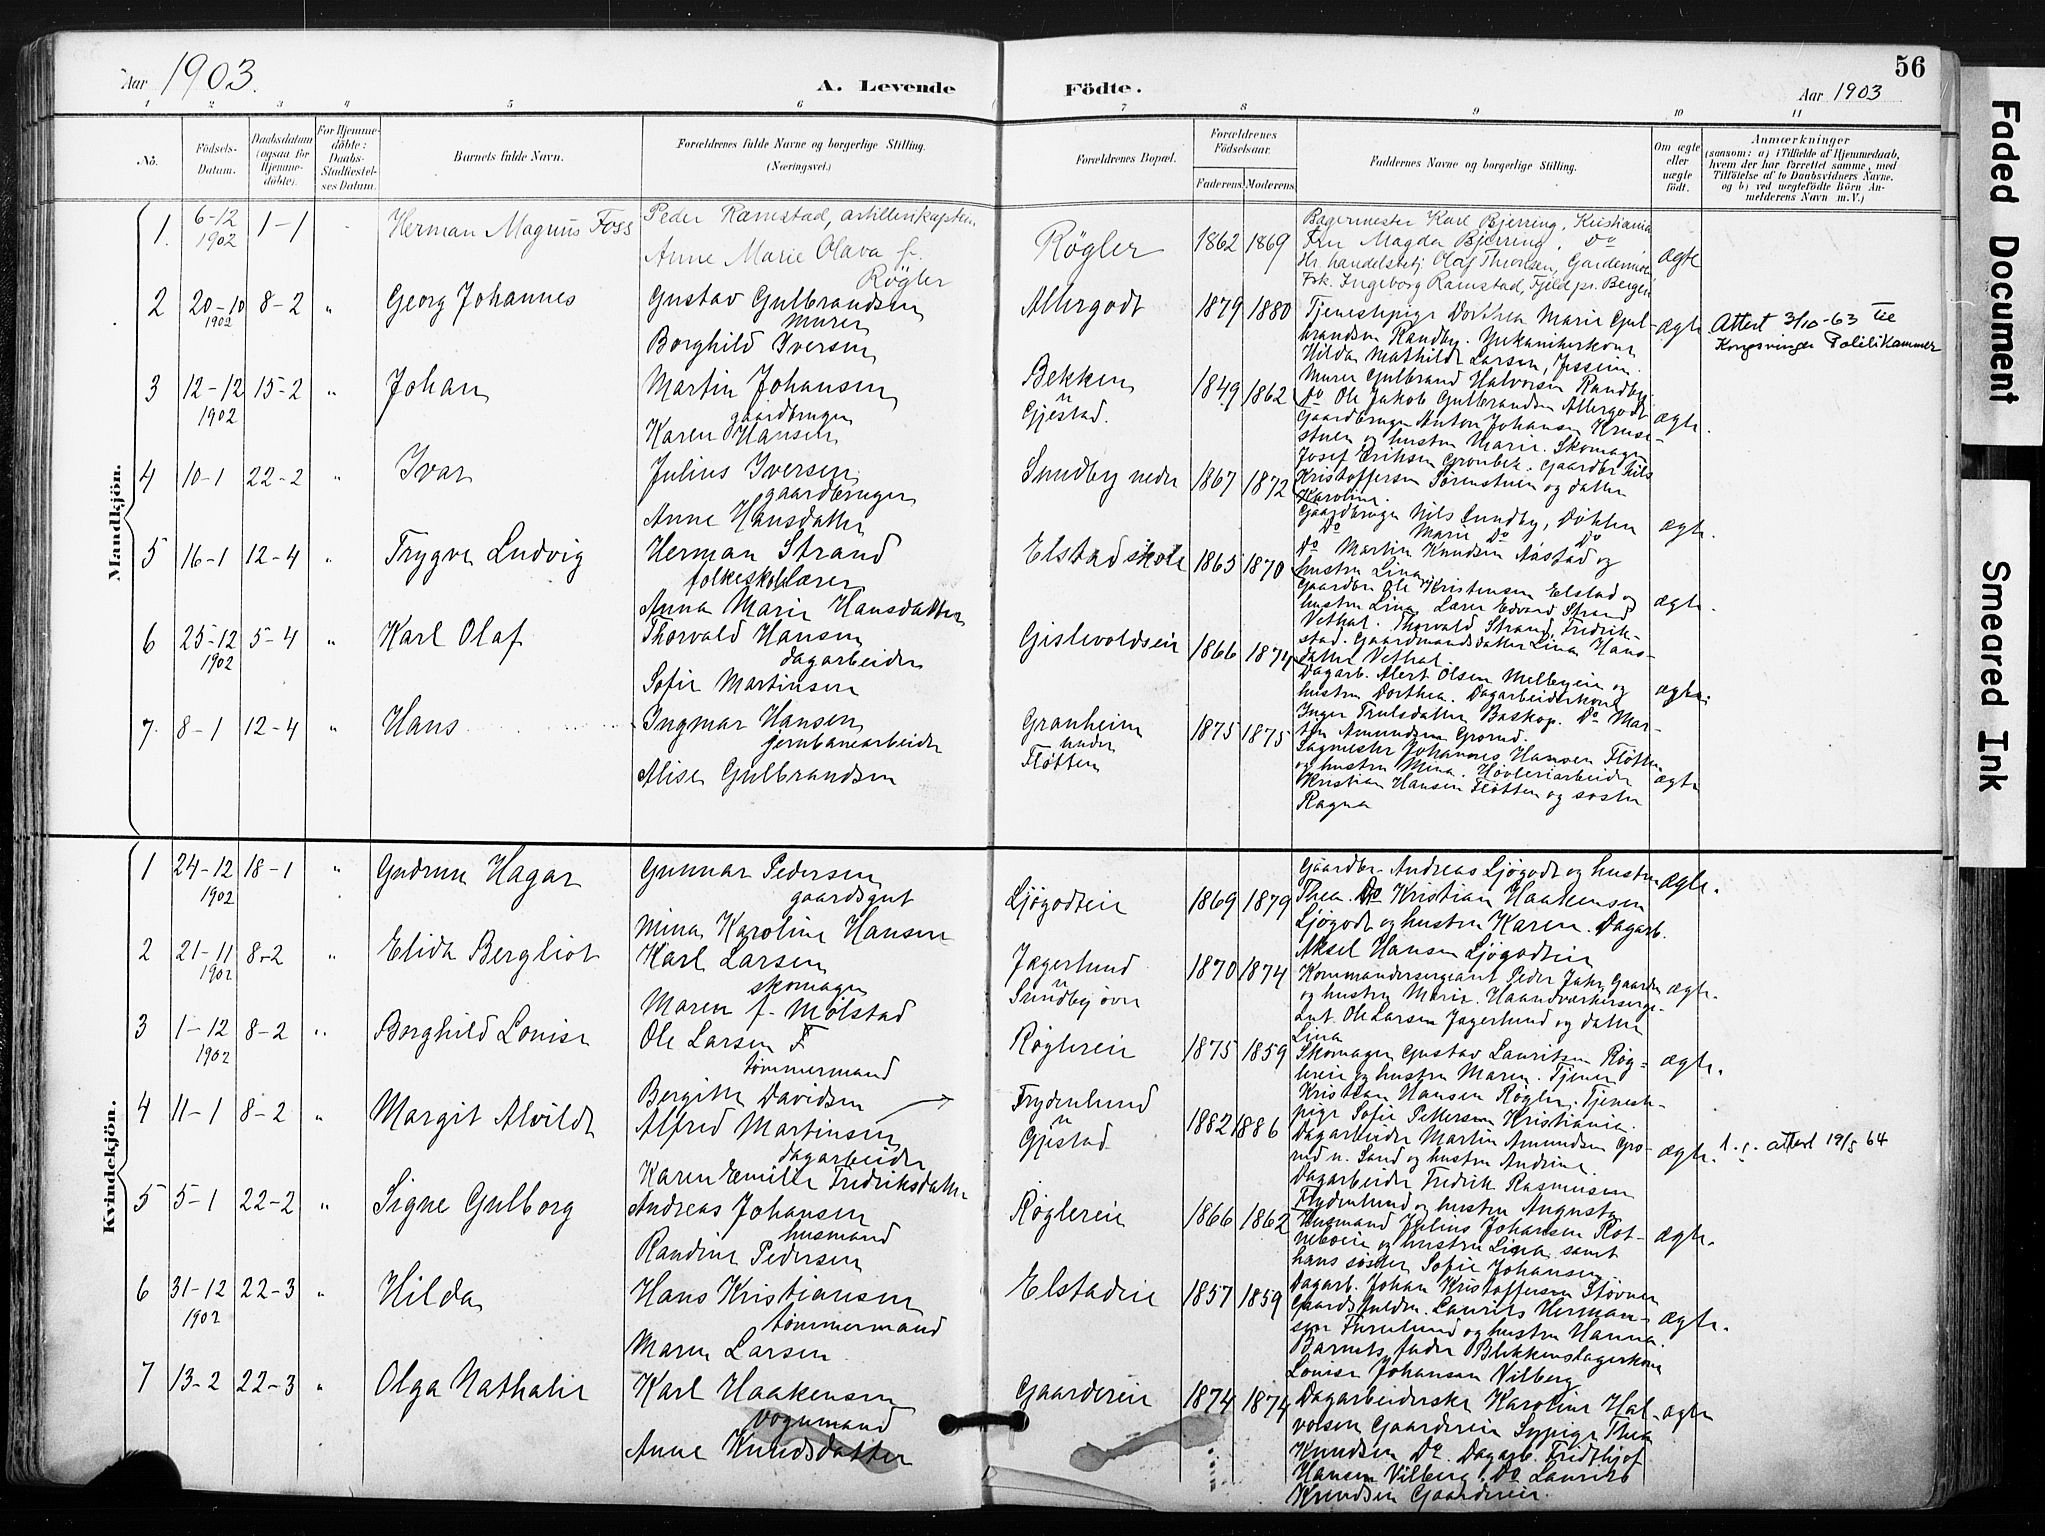 56
Aar 1903.
A. Levende Födte.
Aar 1903
1 2 3 4 5 6 7 8 9 10 11
No.
Födsels-Datum.
Daabsdatum (ogsaa for Hjemme-döbte).
For Hjemme-döbte: Daabs-Stadfæstel-ses Datum.
Barnets fulde Navn.
Forældrenes fulde Navne og borgerlige Stilling.
(Næringsvei.)
Forældrenes Bopæl.
Forældrenes Födselsaar.
Faderens Moderens
Faddernes Navne og borgerlige Stilling.
Om ægte eller uægte födt.
Anmærkninger
(saasom: a) i Tilfælde af Hjemmedaab, hvem der har forrettet samme, med Tilföielse af to Daabsvidners Navne, og b) ved uægtefödte Börn An-melderens Navn m. V.)
Mandkjön.
1. 6-12 1902 1-1 Herman Magnus Foss
Peder Ramstad, artillerikaptein
Anne Marie Olava f. Røgler
Røgler 1862 1869
Bagermester Karl Bjerring, Kristiania
Fru Magda Bjerring, Do
Hr. handelsbestj. Olaf Thorsen, Gardermoen
Frk. Ingeborg Ramstad, Fjeld pr. Bergen
ægte
2 20-10 1902 8-2 " Georg Johannes
Gustav Gulbrandsen
murer
Borghild Iversen
Allergodt 1879 1880
Tjenestepige Dorthea Marie Gul-
brandsen Randby.
Hilda Mathilde Larsen, Jessheim.
Murer Gulbrand Halvorsen Randby.
Do Ole Jakob Gulbrandsen Allergodt
ægte
Attest 3/10-63 til
Kongsvinger Politikammer
3 12-12 1902 15-2 " Johan
Martin Johansen
gaardbruger
Karen Hansen
Bekken
n
Gjestad.
1849 1862
Gaardbruger Anton Johansen Kruse-
stuen og hustru Marie. Skomager
Josef Eriksen Grønbek. Gaardbr. Nils
Kristoffersen Sørenstuen og datter
Karoline.
ægte.
4 10-1 22-2 " Ivar
Julius Iversen
gaardbruger
Anne Hansdatter
Sundby nedre 1867 1872
Gaardbruger Nils Sundby, Døhlen
Do Marie Do Do
Do Martin Knudsen Nåstad og
hustru Lina
ægte.
5 16-1 12-4 " Trygve Ludvig
Herman Strand
folkeskolelærer
Anna Marie Hansdatter
Elstad skole 1865 1870
Gaardbr. Ole Kristensen Elstad og
hustru Lina. Lærer Edvard Strand
Vethal. Thorvald Strand, Fredrik-
stad. Gaardmandsdatter Lina Hans-
datter Vethal
ægte.
6 25-12 1902 5-4 " Karl Olaf
Thorvald Hansen
dagarbeider
Sofie Martinsen
Gislevoldseie 1866 1874
Dagarb. Alert Olsen Melbyeie og
hustru Dorthea. Dagarbeiderkone
Inger Trulsdatter Baskop. Do Mar-
tin Amundsen Grorud.
ægte.
7. 8-1 12-4 " Hans
Ingmar Hansen
jernbanearbeider
Alise Gulbrandsen
Granheim
under
Fløtten
1875 1875
Sagmester Johannes Hansen Fløtten
og hustru Mina. Høvleriarbeider
Kristian Hansen Fløtten og søster
Ragna
ægte
Kvindekjön.
1 24-12 1902 18-1 " Gudrun Hagar
Gunnar Pedersen
gaardsgut
Mina Karoline Hansen
Ljøgodteie 1869 1879
Gaardbr. Andreas Ljøgodt og hustru
Thea. Do Kristian Haakensen
Ljøgodt og hustru Karen. Dagarb.
Aksel Hansen Ljøgodteie
ægte.
2 21-11 1902 8-2 " Elida Bergliot
Karl Larsen
skomager
Maren f. Mølstad
Jægerlund
n
Sundby øvre
1870 1874
Kommandersergeant Peder Juhr, Gaarder
og hustru Marie. Haandværkerserge-
ant Ole Larsen Jægerlund og datter
Lina
ægte.
3 1-12 1902 8-2 " Borghild Louise
Ole Larsen F
tømmermand
Bergitte Davidsen
Røglereie 1875 1859
Skomager Gustav Lauritsen Røg-
lereie og hustru Maren. Tjener
Kristian Hansen Røgler. Tjeneste-
pige Sofie Pettersen Kristiania.
ægte.
4 11-1 8-2 " Margit Alvilde
Alfred Martinsen
dagarbeider
Karen Emilie Fredriksdatter
Frydenlund
n
Gjestad
1882 1886
Dagarbeider Martin Amundsen Gro-
rud n. Sand og hustru Andrine.
Dagarbeider Fredrik Rasmussen
Frydenlund og hustru Augusta
ægte.
attest 19/5 64
5 5-1 22-2 " Signe Gulborg
Andreas Johansen
husmand
Randine Pedersen
Røglereie 1866 1862
Husmand Julius Johansen Rot-
nebøeie og hustru Lina samt
hans søster Sofie Johansen
Dagarb. Johan Kristoffersen Støvner
ægte.
6 31-12 1902 22-3 " Hilda
Hans Kristiansen
tømmermand
Maren Larsen
Elstadeie 1857 1859
Laurits Herman-
sen Furulund og hustru Hanna
Barnets fader Blikkenslagerkone
Louise Johansen Vilberg
ægte.
7 13-2 22-3 " Olga Nathalie
Karl Haakensen
vognmand
Anne Knudsdatter
Gaardereie 1874 1874
Dagarbeiderske Karoline Hal-
vorsen Gaardereie Sypige Thea
Knudsen Do. Dagarb. Fridthjof
Hansen Vilberg. Do Laurits
Knudsen Gaardereie.
ægte
Faded Document
Smeared Ink